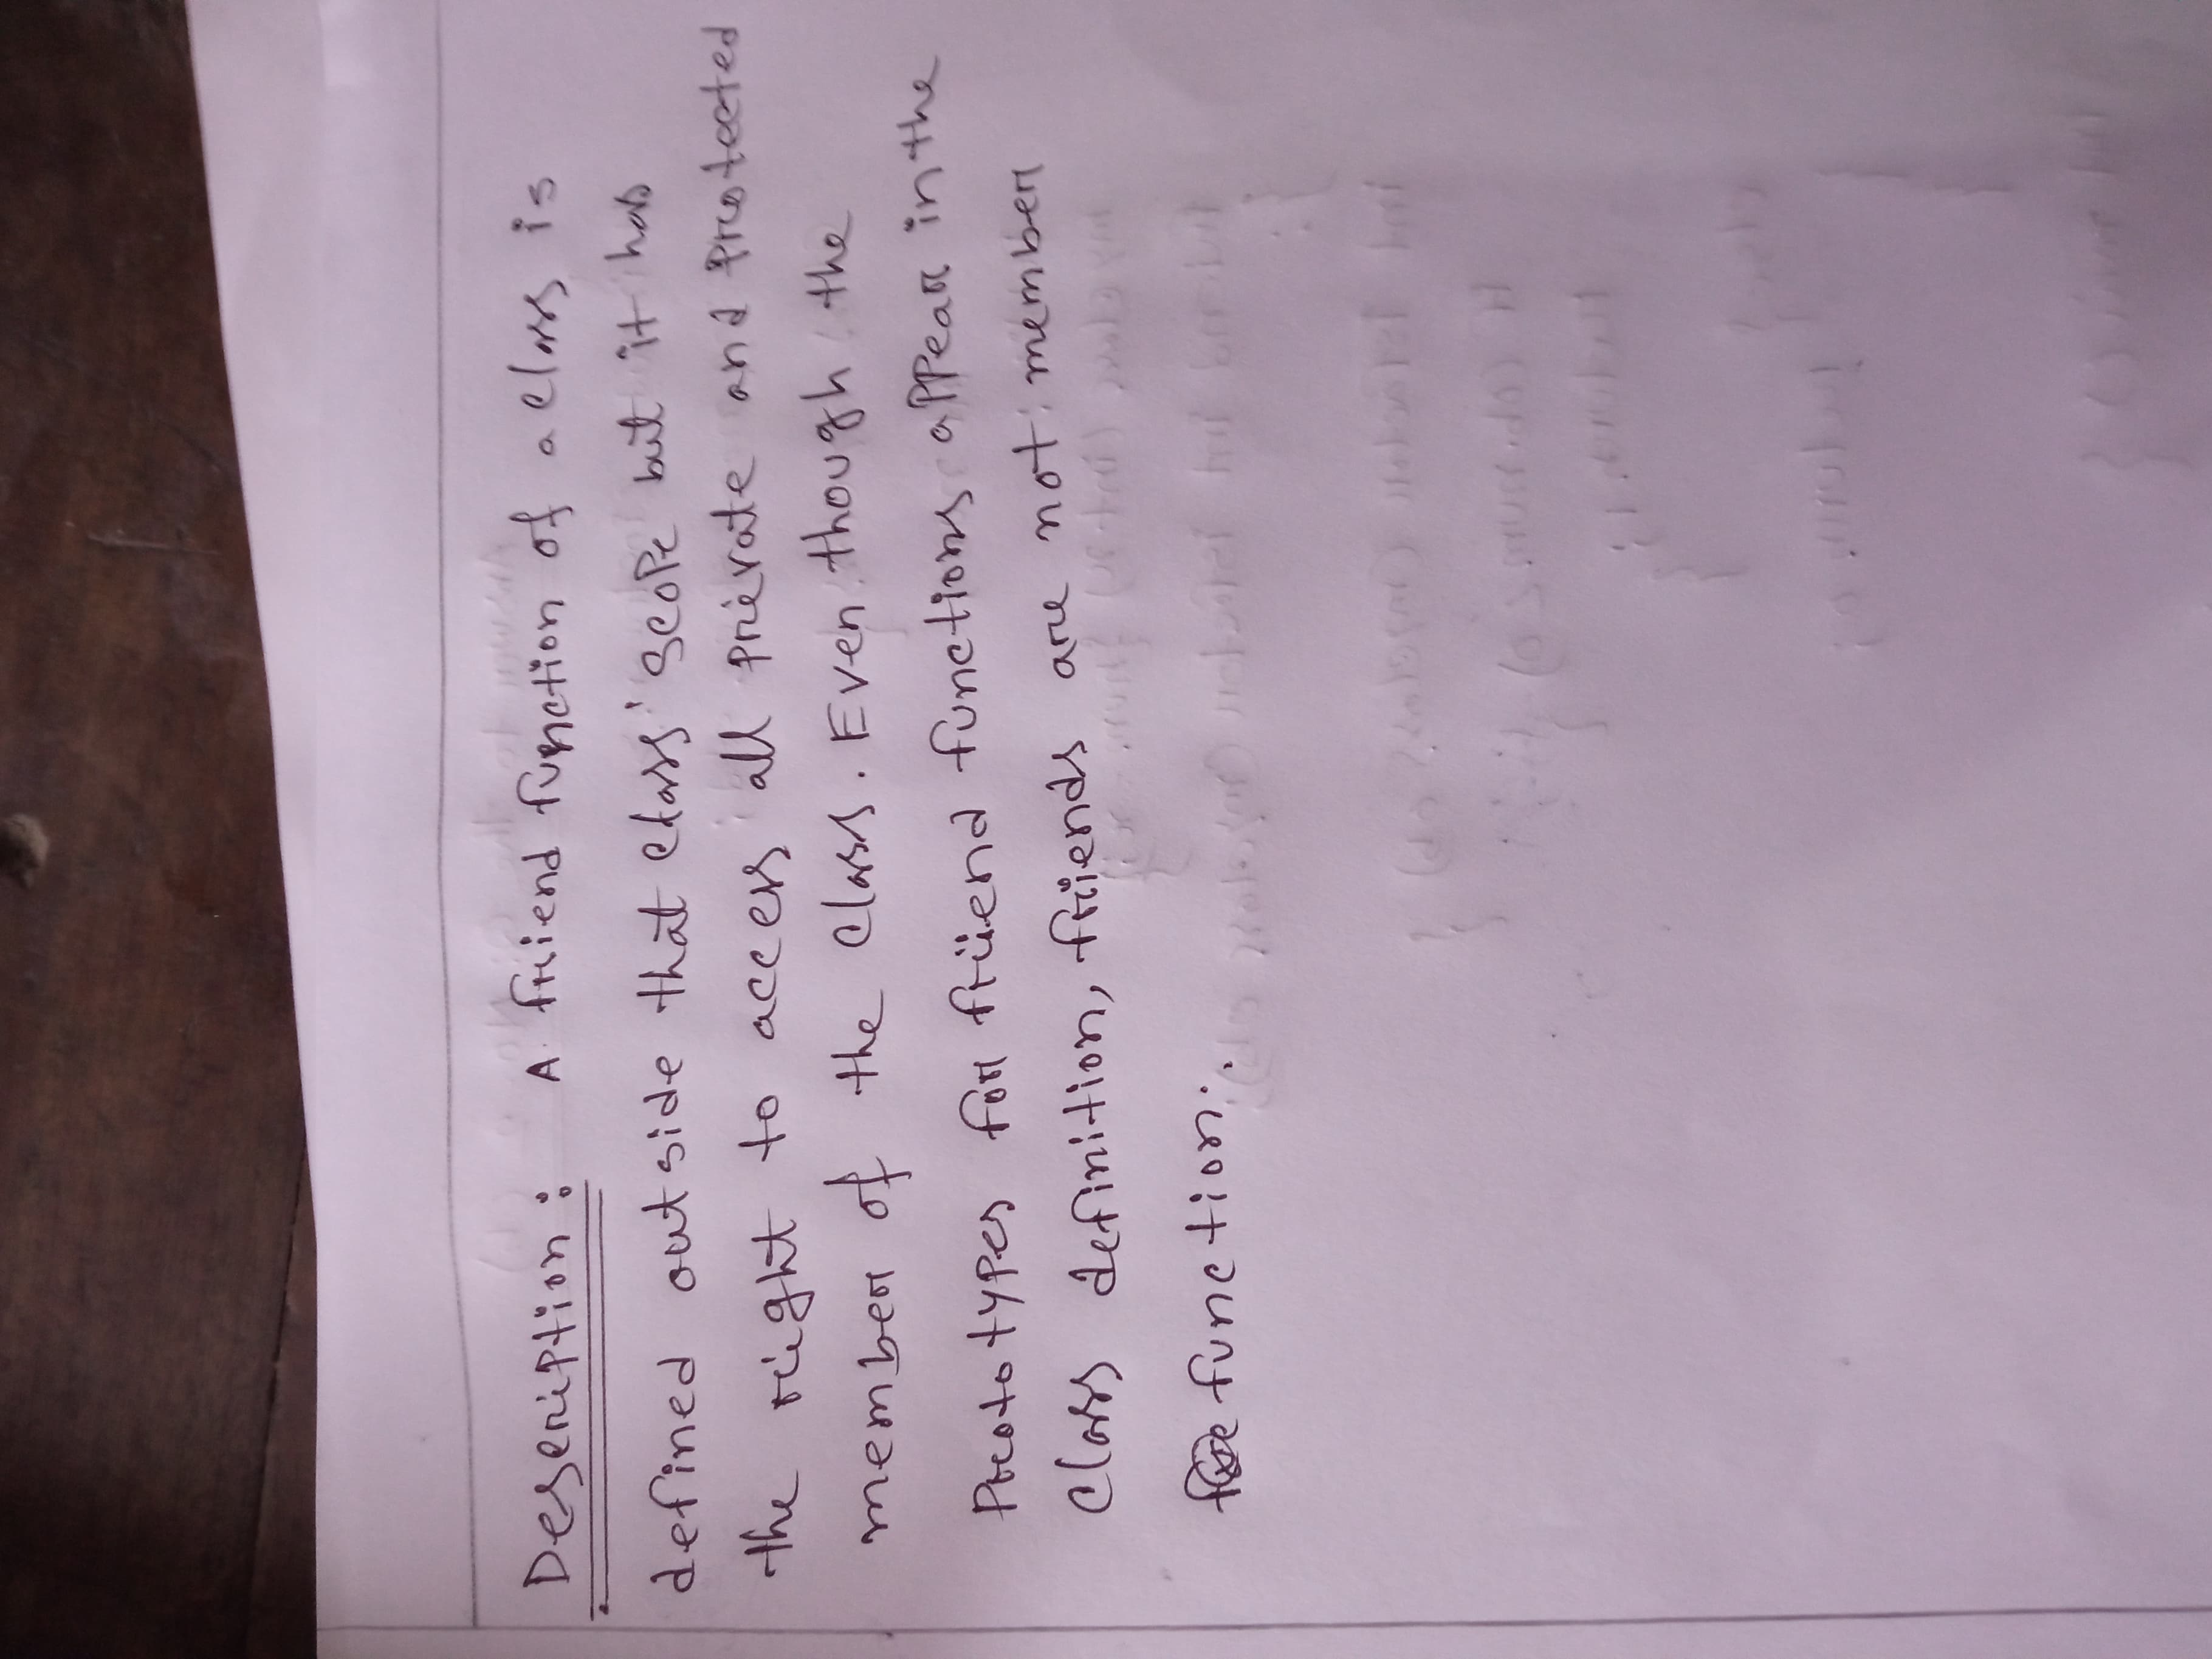 Description: A friend function of a class is
defined outside that class' scope but it has
the right to access all private and protected
member of the class. Even though the
prototypes for friend functions appear in the
class definition, friends are not member
function.